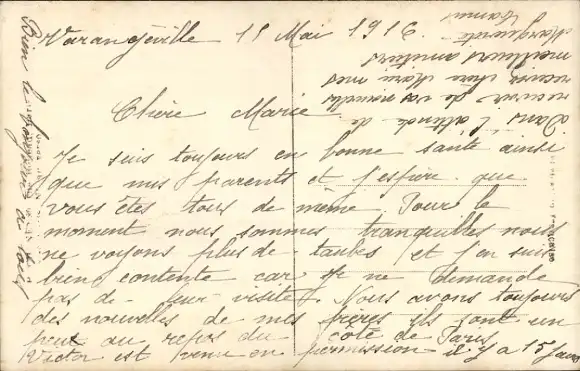 Varangéville 11 Mai 1916.
Chère Marie
Je suis toujours en bonne santé ainsi
que mes parents et j'espère que
vous êtes tous de même. Pour le
moment nous sommes tranquilles nous
ne voyons plus de taubes et j'en suis
bien contente car je ne demande
pas de leur visite. Nous avons toujours
des nouvelles de mes frères ils sont un
peu au repos du côté de Paris
Victor est venu en permission il y a 15 jours
Dans l'attende de
recevoir de vos nouvelles
recevez chère Marie mes
meilleurs amitiés
Marguerite
Bien le bonjour à tous